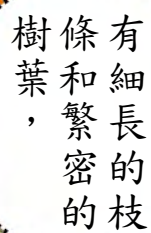 有細長的枝
條和繁密的
樹葉，